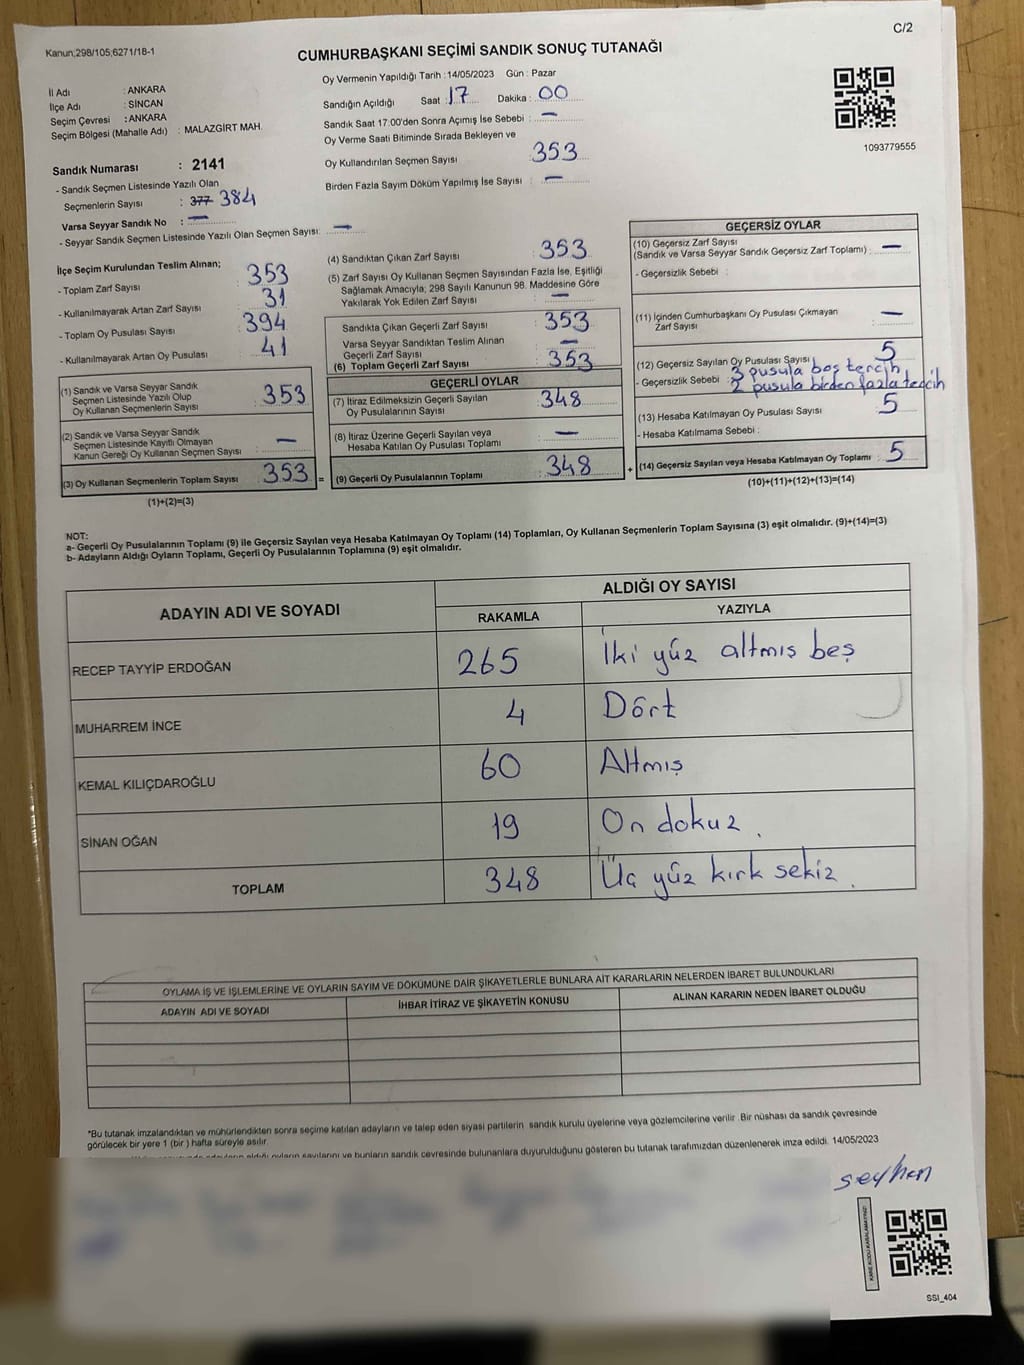 C/2
Kanun;298/105;6271/18-1
CUMHURBAŞKANI SEÇİMİ SANDIK SONUÇ TUTANAĞI
İl Adı : ANKARA
İlçe Adı : SİNCAN
Seçim Çevresi : ANKARA
Seçim Bölgesi (Mahalle Adı) : MALAZGİRT MAH.
Oy Vermenin Yapıldığı Tarih : 14/05/2023 Gün : Pazar
Sandığın Açıldığı Saat : 17 Dakika : 00
Sandık Saat 17:00'den Sonra Açımış İse Sebebi : —
Oy Verme Saati Bitiminde Sırada Bekleyen ve
Oy Kullandırılan Seçmen Sayısı : 353
Birden Fazla Sayım Döküm Yapılmış İse Sayısı : —
1093779555
Sandık Numarası : 2141
- Sandık Seçmen Listesinde Yazılı Olan
Seçmenlerin Sayısı : 377 384
Varsa Seyyar Sandık No : —
- Seyyar Sandık Seçmen Listesinde Yazılı Olan Seçmen Sayısı: —
İlçe Seçim Kurulundan Teslim Alınan;
- Toplam Zarf Sayısı : 353
- Kullanılmayarak Artan Zarf Sayısı : 31
- Toplam Oy Pusulası Sayısı : 394
- Kullanılmayarak Artan Oy Pusulası : 41
(1) Sandık ve Varsa Seyyar Sandık
Seçmen Listesinde Yazılı Olup
Oy Kullanan Seçmenlerin Sayısı : 353
(2) Sandık ve Varsa Seyyar Sandık
Seçmen Listesinde Kayıtlı Olmayan
Kanun Gereği Oy Kullanan Seçmen Sayısı : —
(3) Oy Kullanan Seçmenlerin Toplam Sayısı : 353 =
(1)+(2)=(3)
(4) Sandıktan Çıkan Zarf Sayısı : 353
(5) Zarf Sayısı Oy Kullanan Seçmen Sayısından Fazla İse, Eşitliği
Sağlamak Amacıyla; 298 Sayılı Kanunun 98. Maddesine Göre
Yakılarak Yok Edilen Zarf Sayısı : —
Sandıkta Çıkan Geçerli Zarf Sayısı : 353
Varsa Seyyar Sandıktan Teslim Alınan
Geçerli Zarf Sayısı : —
(6) Toplam Geçerli Zarf Sayısı : 353
GEÇERLİ OYLAR
(7) İtiraz Edilmeksizin Geçerli Sayılan
Oy Pusulalarının Sayısı : 348
(8) İtiraz Üzerine Geçerli Sayılan veya
Hesaba Katılan Oy Pusulası Toplamı : —
(9) Geçerli Oy Pusulalarının Toplamı : 348 +
GEÇERSİZ OYLAR
(10) Geçersiz Zarf Sayısı
(Sandık ve Varsa Seyyar Sandık Geçersiz Zarf Toplamı) : —
- Geçersizlik Sebebi :
(11) İçinden Cumhurbaşkanı Oy Pusulası Çıkmayan
Zarf Sayısı : —
(12) Geçersiz Sayılan Oy Pusulası Sayısı : 5
- Geçersizlik Sebebi : 3 pusula boş tercih
2 pusula birden fazla tercih
(13) Hesaba Katılmayan Oy Pusulası Sayısı : 5
- Hesaba Katılmama Sebebi :
(14) Geçersiz Sayılan veya Hesaba Katılmayan Oy Toplamı : 5
(10)+(11)+(12)+(13)=(14)
NOT:
a- Geçerli Oy Pusulalarının Toplamı (9) ile Geçersiz Sayılan veya Hesaba Katılmayan Oy Toplamı (14) Toplamları, Oy Kullanan Seçmenlerin Toplam Sayısına (3) eşit olmalıdır. (9)+(14)=(3)
b- Adayların Aldığı Oyların Toplamı, Geçerli Oy Pusulalarının Toplamına (9) eşit olmalıdır.
ADAYIN ADI VE SOYADI
ALDIĞI OY SAYISI
RAKAMLA YAZIYLA
RECEP TAYYİP ERDOĞAN 265 İki yüz altmış beş
MUHARREM İNCE 4 Dört
KEMAL KILIÇDAROĞLU 60 Altmış
SİNAN OĞAN 19 On dokuz.
TOPLAM 348 Üç yüz kırk sekiz.
OYLAMA İŞ VE İŞLEMLERİNE VE OYLARIN SAYIM VE DÖKÜMÜNE DAİR ŞİKAYETLERLE BUNLARA AİT KARARLARIN NELERDEN İBARET BULUNDUKLARI
ADAYIN ADI VE SOYADI İHBAR İTİRAZ VE ŞİKAYETİN KONUSU ALINAN KARARIN NEDEN İBARET OLDUĞU
*Bu tutanak imzalandıktan ve mühürlendikten sonra seçime katılan adayların ve talep eden siyasi partilerin sandık kurulu üyelerine veya gözlemcilerine verilir .Bir nüshası da sandık çevresinde
görülecek bir yere 1 (bir ) hafta süreyle asılır.
adayların aldığı oyların sayılarını ve bunların sandık çevresinde bulunanlara duyurulduğunu gösteren bu tutanak tarafımızdan düzenlenerek imza edildi. 14/05/2023
seyhan
KARE KODU KARALAMAYINIZ!
SSI_404